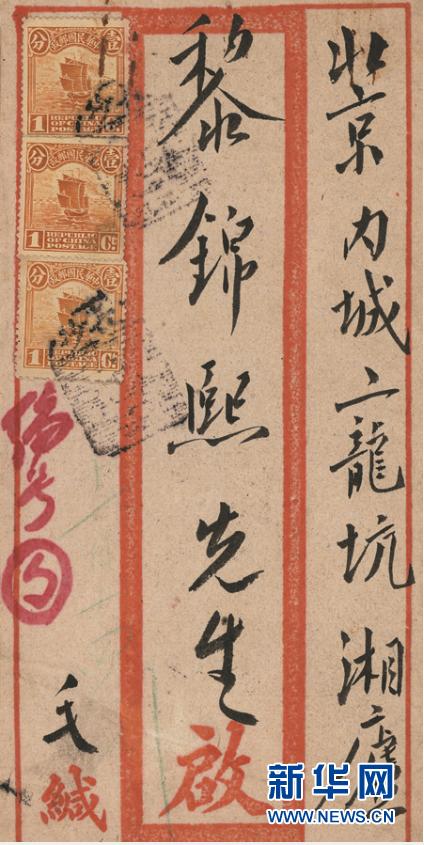 北京内城二龍坑湘廬
黎錦熙先生啟
中華民國郵政
壹分
REPUBLIC
OF CHINA
POSTAGE
1
中華民國郵政
壹分
REPUBLIC
OF CHINA
POSTAGE
1 Ct
中華民國郵政
壹分
REPUBLIC
OF CHINA
POSTAGE
1 Ct
编号
毛緘
新华网
WWW.NEWS.CN